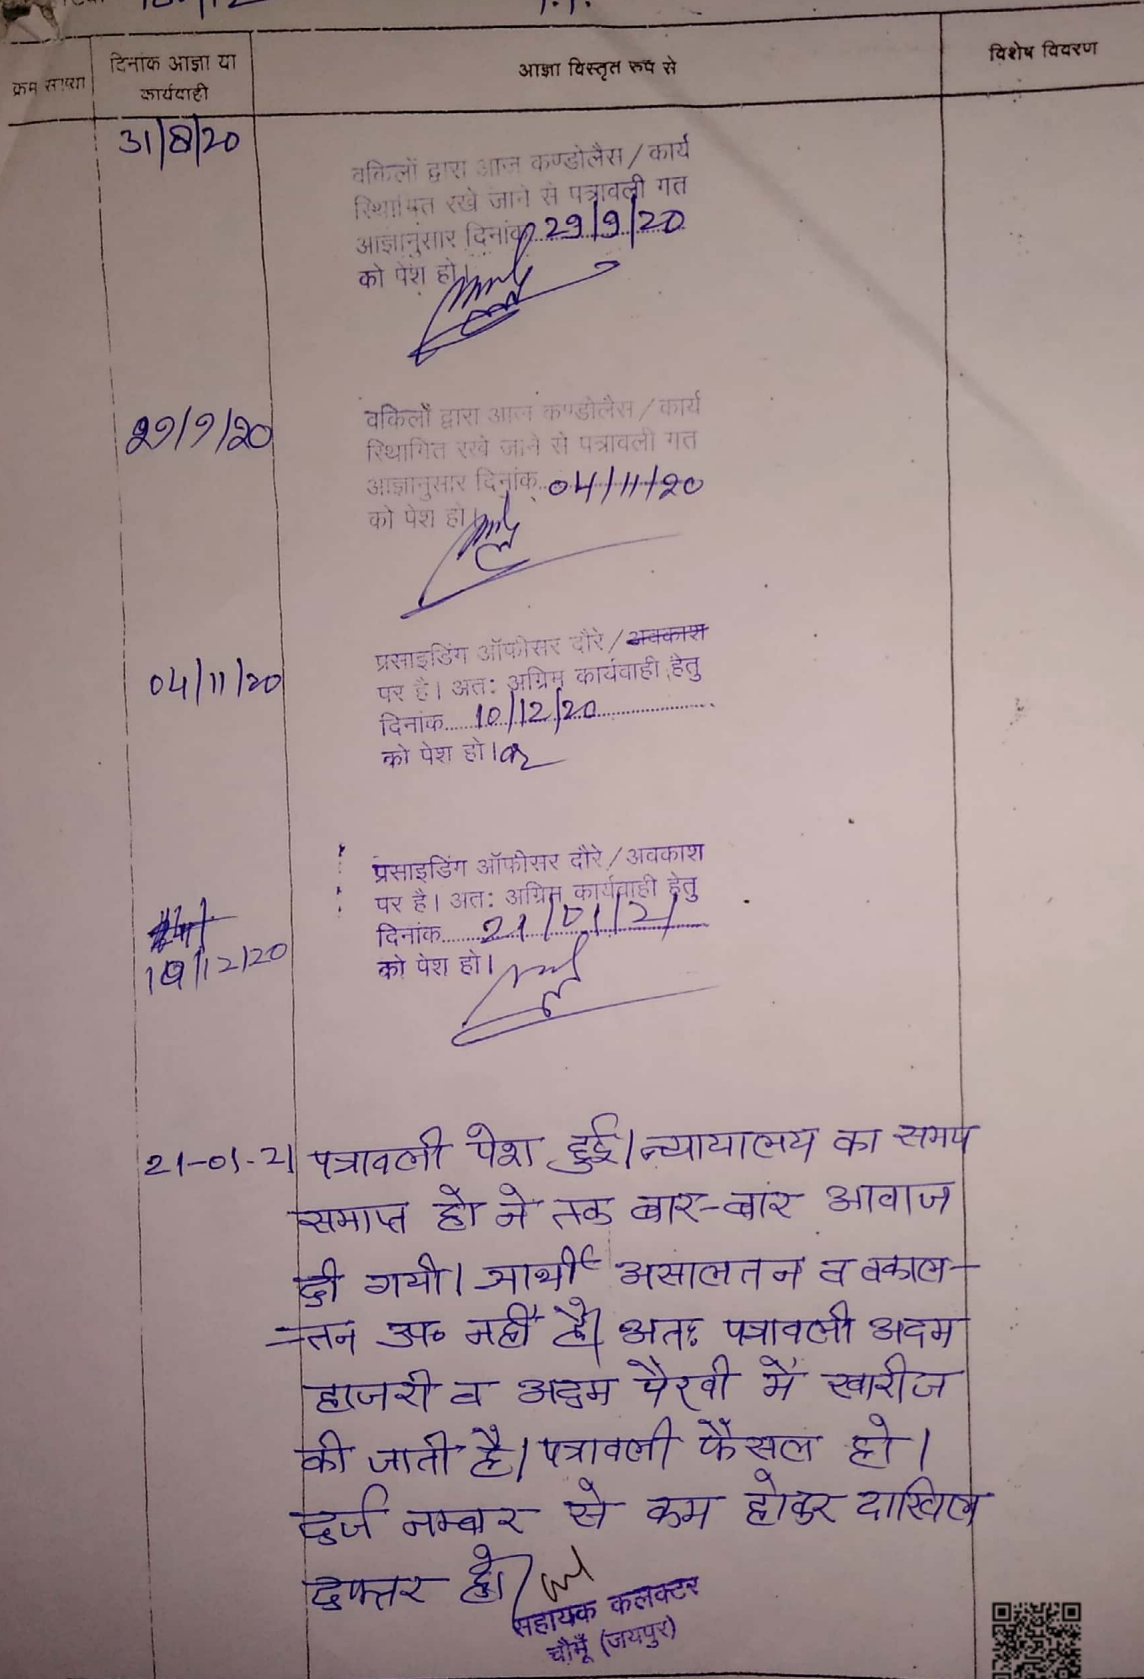 क्रम संख्या
दिनांक आज्ञा या
कार्यवाही
आज्ञा विस्तृत रूप से
विशेष विवरण
31/8/20
वकिलों द्वारा आज कण्डोलैस / कार्य
स्थिगित रखे जाने से पत्रावली गत
आज्ञानुसार दिनांक 29/9/20
को पेश हो।
29/9/20
वकिलों द्वारा आज कण्डोलैस / कार्य
स्थिगित रखे जाने से पत्रावली गत
आज्ञानुसार दिनांक 04/11/20
को पेश हो।
04/11/20
प्रसाइडिंग ऑफीसर दौरे / अवकाश
पर है। अत: अग्रिम कार्यवाही हेतु
दिनांक 10/12/20
को पेश हो।
प्रसाइडिंग ऑफीसर दौरे / अवकाश
पर है। अत: अग्रिम कार्यवाही हेतु
दिनांक 21/01/21
को पेश हो।
10/12/20
21-01-21 पत्रावली पेश हुई। न्यायालय का समय
समाप्त हो ने तक बार-बार आवाज
दी गयी। प्रार्थी असालतन व वकाल-
-तन उप० नहीं है। अतः पत्रावली अदम
हाजरी व अदम पैरवी में खारीज
की जाती है। पत्रावली फैसल हो।
दर्ज नम्बर से कम होकर दाखिल
दफ्तर हो।
सहायक कलक्टर
चौमूँ (जयपुर)